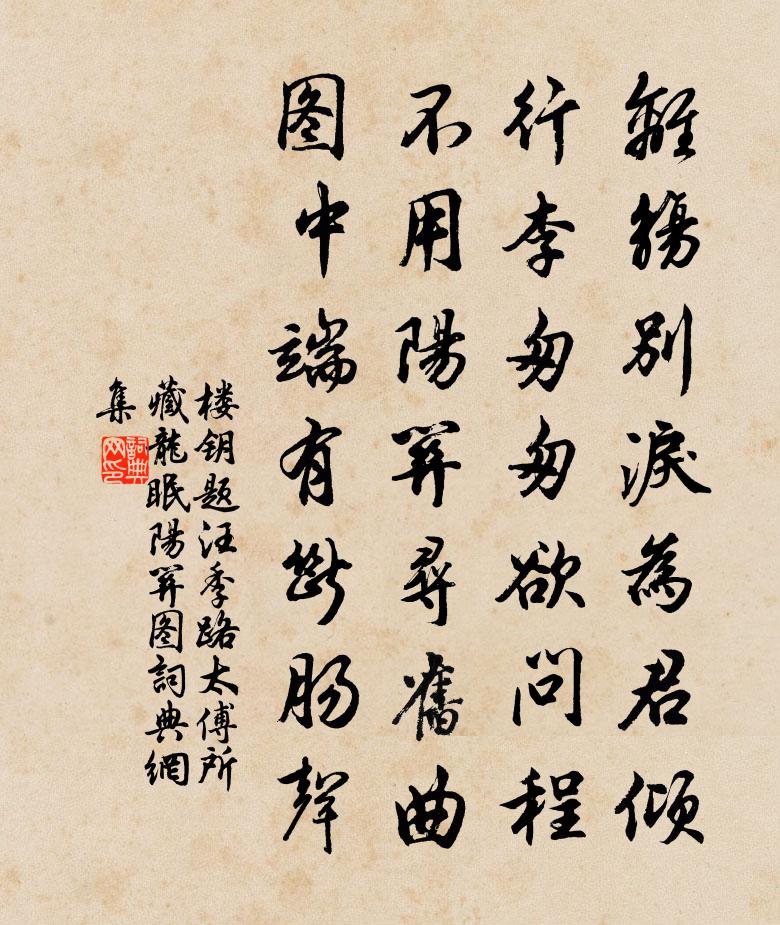 離觴別淚為君傾
行李匆匆欲問程
不用陽關尋舊曲
图中端有斷腸聲
楼钥题汪季路太傅所
藏龍眠陽關图詞典網
集
詞典網印